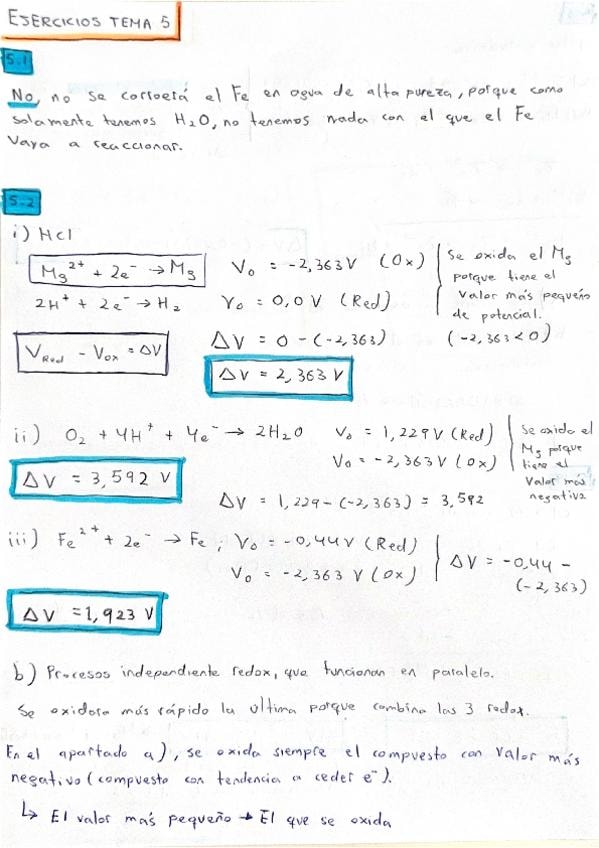 EJERCICIOS TEMA 5
5.1
No, no se corroerá el Fe en agua de alta pureza, porque como
solamente tenemos H₂O, no tenemos nada con el que el Fe
vaya a reaccionar.
5.2
i) HCl
Mg²⁺ + 2e⁻ → Mg V₀ = -2,363V (Ox)
2H⁺ + 2e⁻ → H₂ V₀ = 0,0 V (Red)
Se oxida el Mg
porque tiene el
valor más pequeño
de potencial.
(-2,363 < 0)
V Red - V Ox = ΔV ΔV = 0 - (-2,363)
ΔV = 2,363 V
ii) O₂ + 4H⁺ + 4e⁻ → 2H₂O V₀ = 1,229V (Red)
V₀ = -2,363V (Ox)
Se oxida el
Mg porque
tiene el
valor más
negativo
ΔV = 3,592 V
ΔV = 1,229 - (-2,363) = 3,592
iii) Fe²⁺ + 2e⁻ → Fe; V₀ = -0,44V (Red)
V₀ = -2,363 V (Ox)
ΔV = -0,44 -
(-2,363)
ΔV = 1,923 V
b) Procesos independiente redox, que funcionan en paralelo.
Se oxidara más rápido la última porque combina las 3 redox.
En el apartado a), se oxida siempre el compuesto con valor más
negativo (compuesto con tendencia a ceder e⁻).
↳ El valor más pequeño → El que se oxida